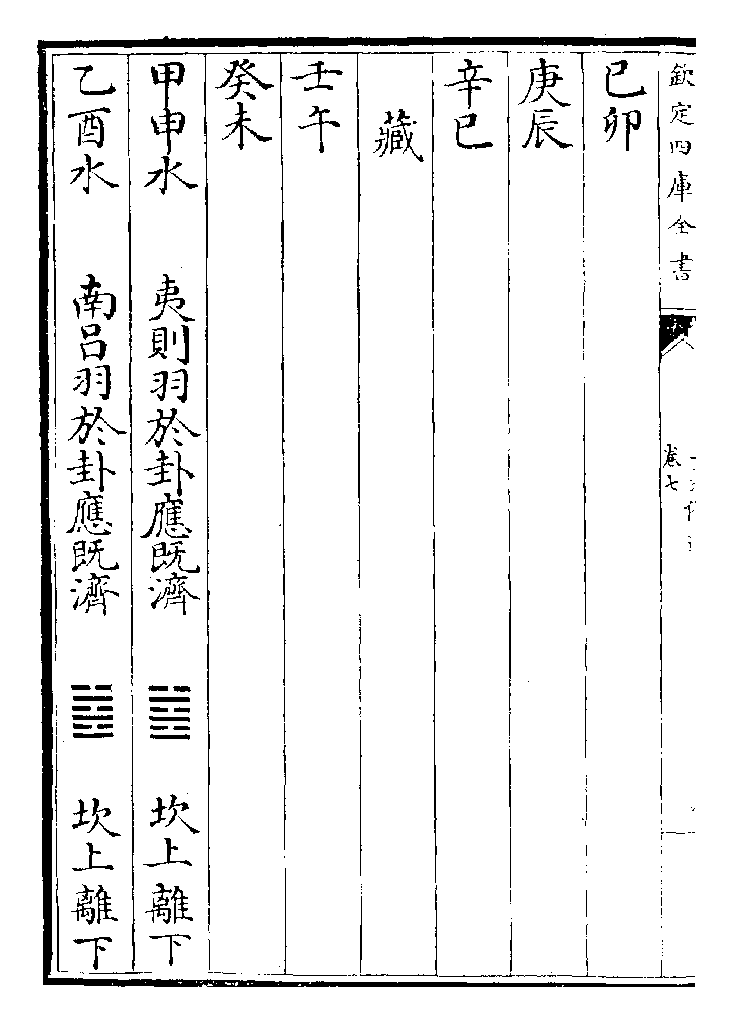 欽定四庫全書
卷七
己卯
庚辰
辛巳
藏
壬午
癸未
甲申水 夷則羽於卦應既濟 ䷾ 坎上離下
乙酉水 南呂羽於卦應既濟 ䷾ 坎上離下